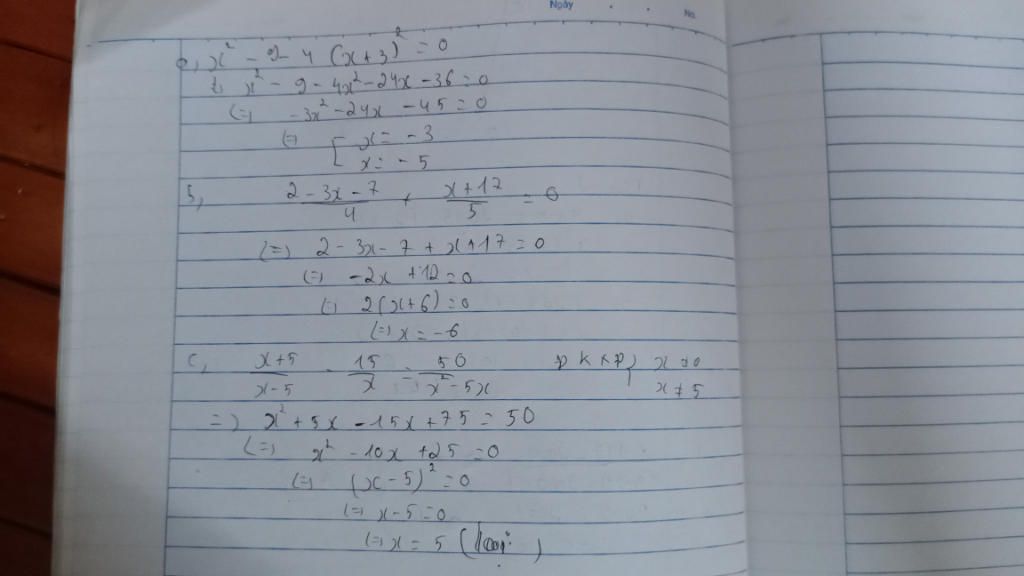 Ngày
No.
a, x² - 9 - 4 (x+3)² = 0
(=) x² - 9 - 4x² - 24x - 36 = 0
(=) -3x² - 24x - 45 = 0
(=) [ x = -3
x = -5
b, 2 - 3x - 7 / 4 + x + 17 / 5 = 0
(=) 2 - 3x - 7 + x + 17 = 0
(=) -2x + 12 = 0
(=) 2(x+6) = 0
(=) x = -6
c, x+5 / x-5 - 15 / x = 50 / x² - 5x ĐKXĐ { x ≠ 0
x ≠ 5
=) x² + 5x - 15x + 75 = 50
(=) x² - 10x + 25 = 0
(=) (x - 5)² = 0
(=) x - 5 = 0
(=) x = 5 (loại)